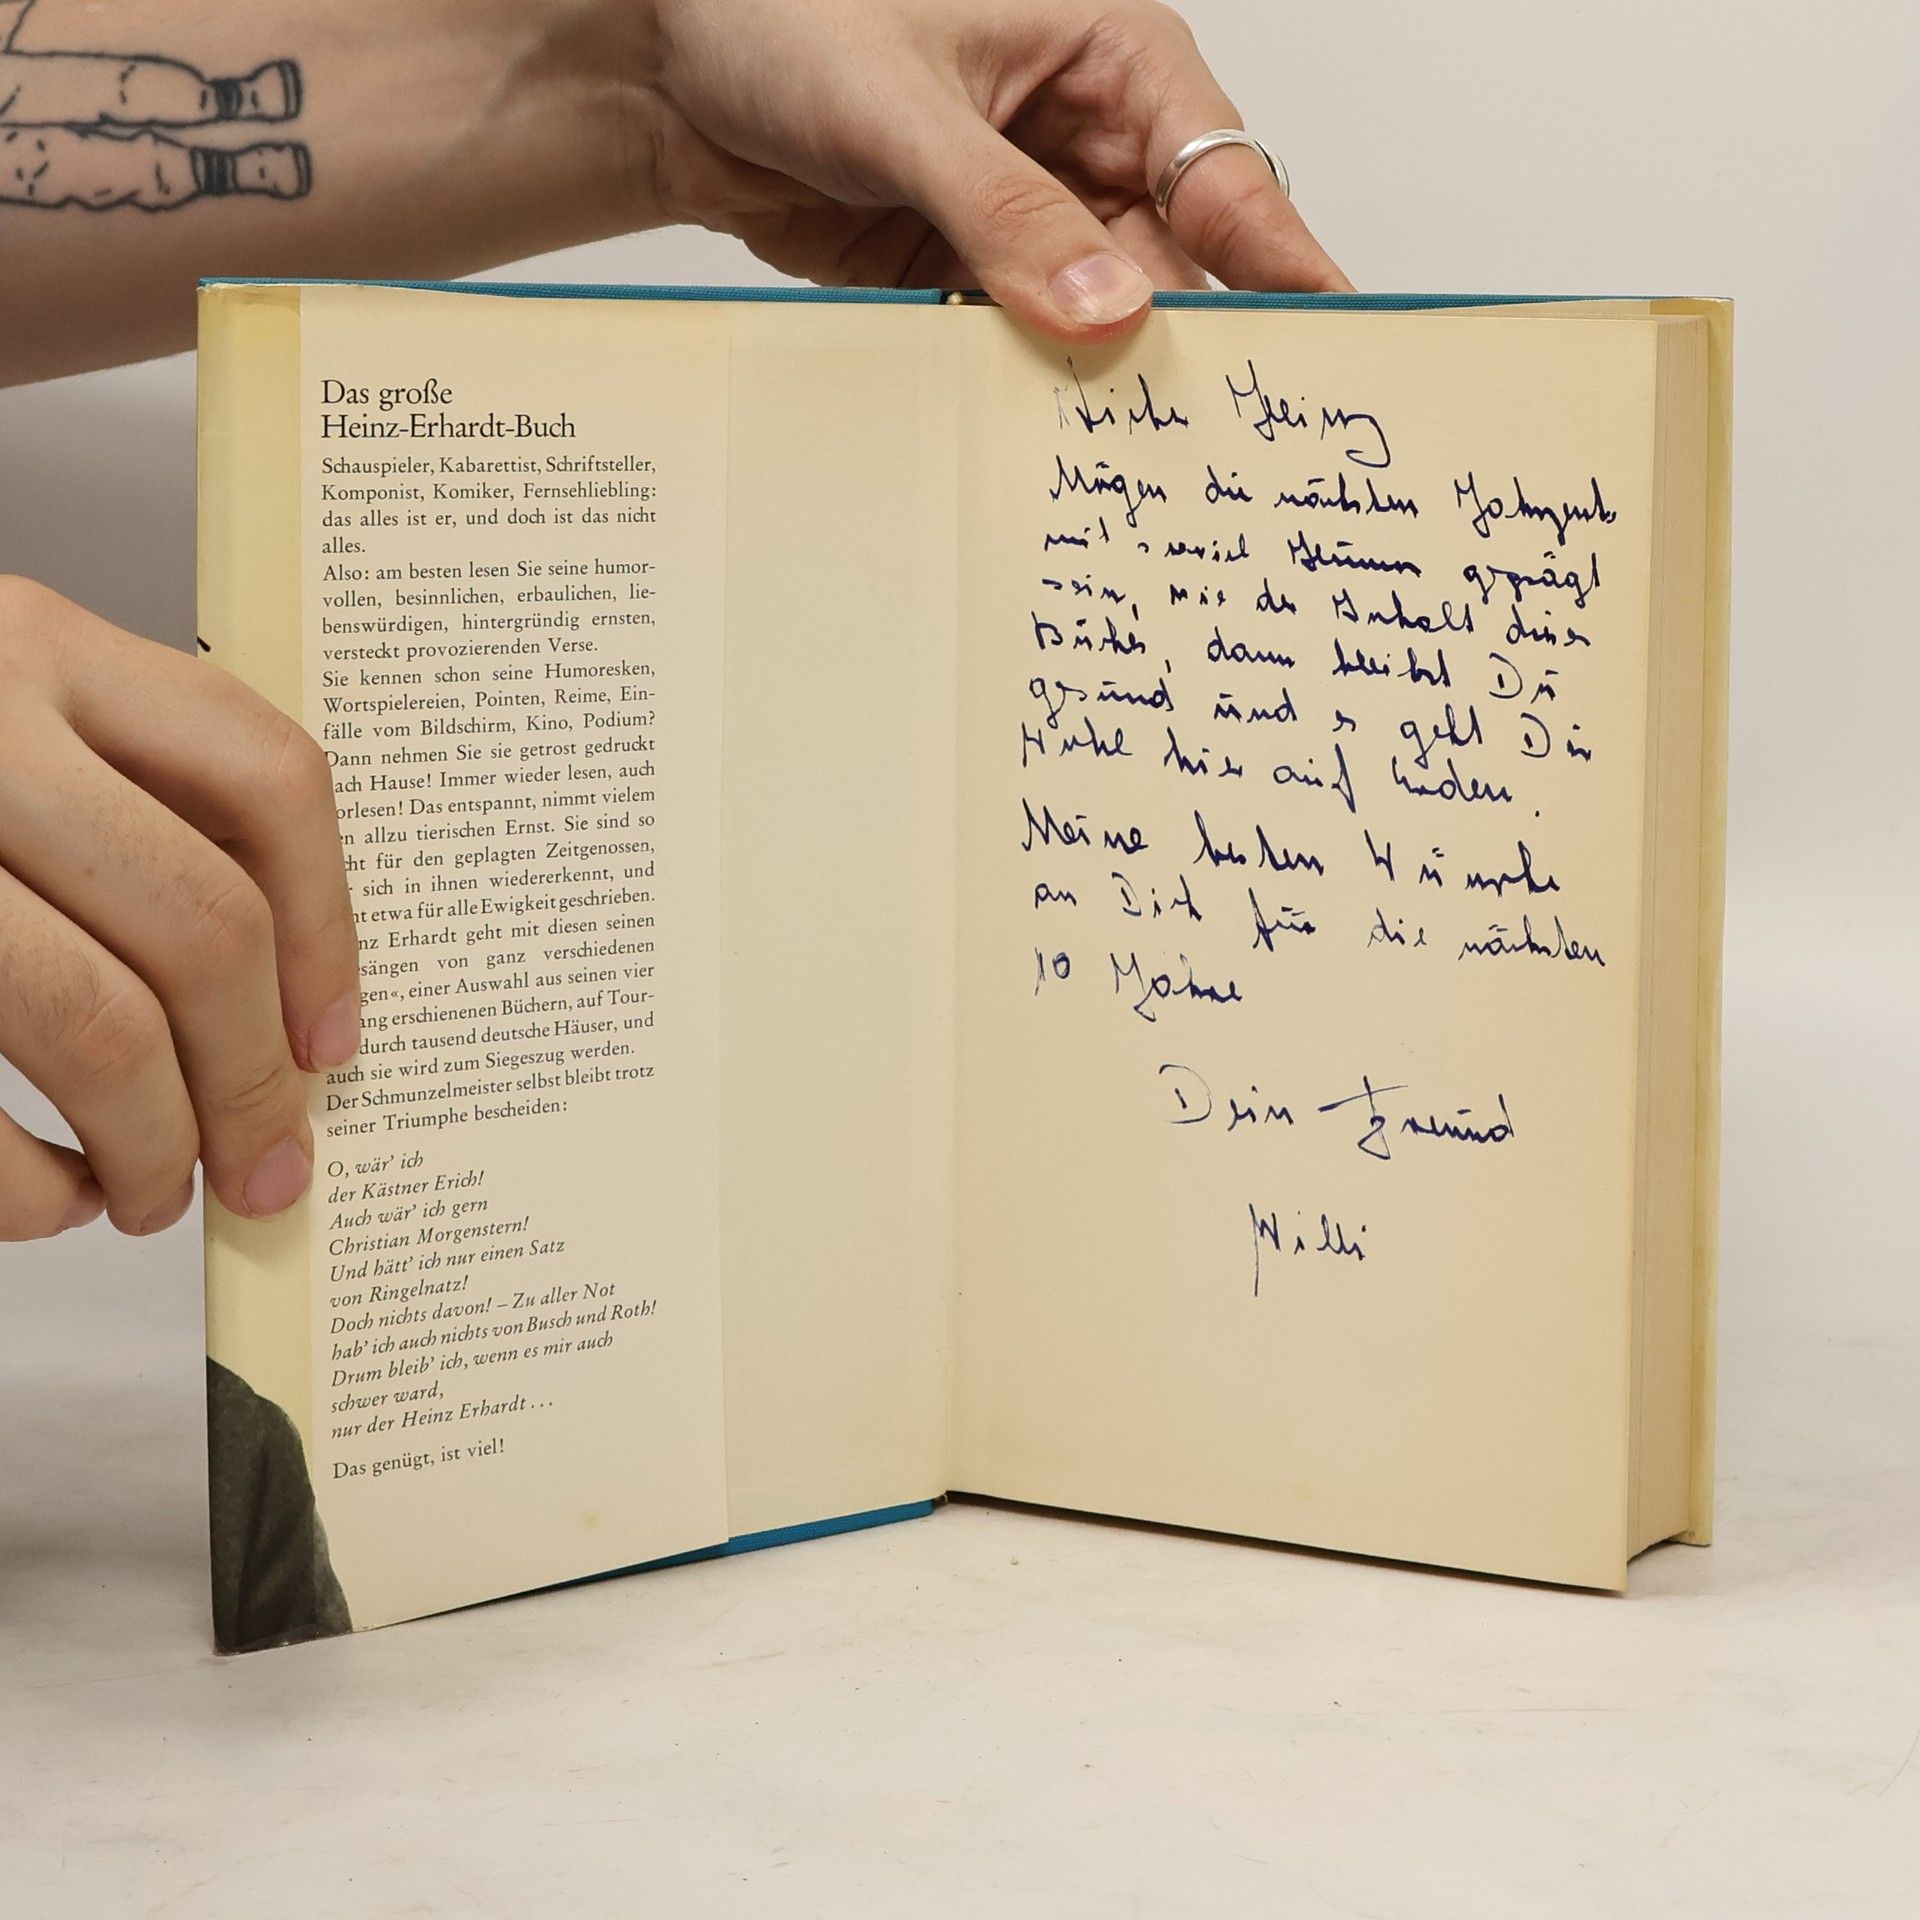 Das große
Heinz-Erhardt-Buch
Schauspieler, Kabarettist, Schriftsteller,
Komponist, Komiker, Fernsehliebling:
das alles ist er, und doch ist das nicht
alles.
Also: am besten lesen Sie seine humor-
vollen, besinnlichen, erbaulichen, lie-
benswürdigen, hintergründig ernsten,
versteckt provozierenden Verse.
Sie kennen schon seine Humoresken,
Wortspielereien, Pointen, Reime, Ein-
fälle vom Bildschirm, Kino, Podium?
Dann nehmen Sie sie getrost gedruckt
ach Hause! Immer wieder lesen, auch
orlesen! Das entspannt, nimmt vielem
en allzu tierischen Ernst. Sie sind so
cht für den geplagten Zeitgenossen,
r sich in ihnen wiedererkennt, und
ht etwa für alle Ewigkeit geschrieben.
nz Erhardt geht mit diesen seinen
sängen von ganz verschiedenen
gen«, einer Auswahl aus seinen vier
ang erschienenen Büchern, auf Tour-
durch tausend deutsche Häuser, und
auch sie wird zum Siegeszug werden.
Der Schmunzelmeister selbst bleibt trotz
seiner Triumphe bescheiden:
O, wär' ich
der Kästner Erich!
Auch wär' ich gern
Christian Morgenstern!
Und hätt' ich nur einen Satz
von Ringelnatz!
Doch nichts davon! – Zu aller Not
hab' ich auch nichts von Busch und Roth!
Drum bleib' ich, wenn es mir auch
schwer ward,
nur der Heinz Erhardt ...
Das genügt, ist viel!
Lieber Heinz
Mögen die nächsten Jahrzent.
mit soviel Humor geprägt
sein, wie der Inhalt dieses
Buches, dann bleibst Du
gesund und es geht Dir
Wohl hier auf Erden.
Meine besten Wünsche
an Dich für die nächsten
10 Jahre
Dein Freund
Willi